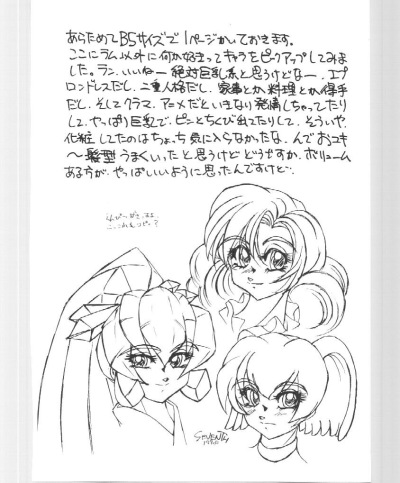 あらためてB5サイズで1ページかいておきます。
ここにラム以外に何か好きってキャラをピークアップしてみま
した。ラン、いいねー 絶対巨乳系と思うけどなー、エプ
ロンドレスだし、二重人格だし、家事とか料理とか得手
だし、そしてクラマ、アニメだといきなり発情しちゃってたり
して、やっぱり巨乳で、ピンとちくび出てたりして、そういや
化粧してたのはちょっち気に入らなかったな、んでおユキ
〜髪型うまくいったと思うけどどうですか、ボリューム
ある方が、やっぱいいように思ったんですけど…
SEVENTH